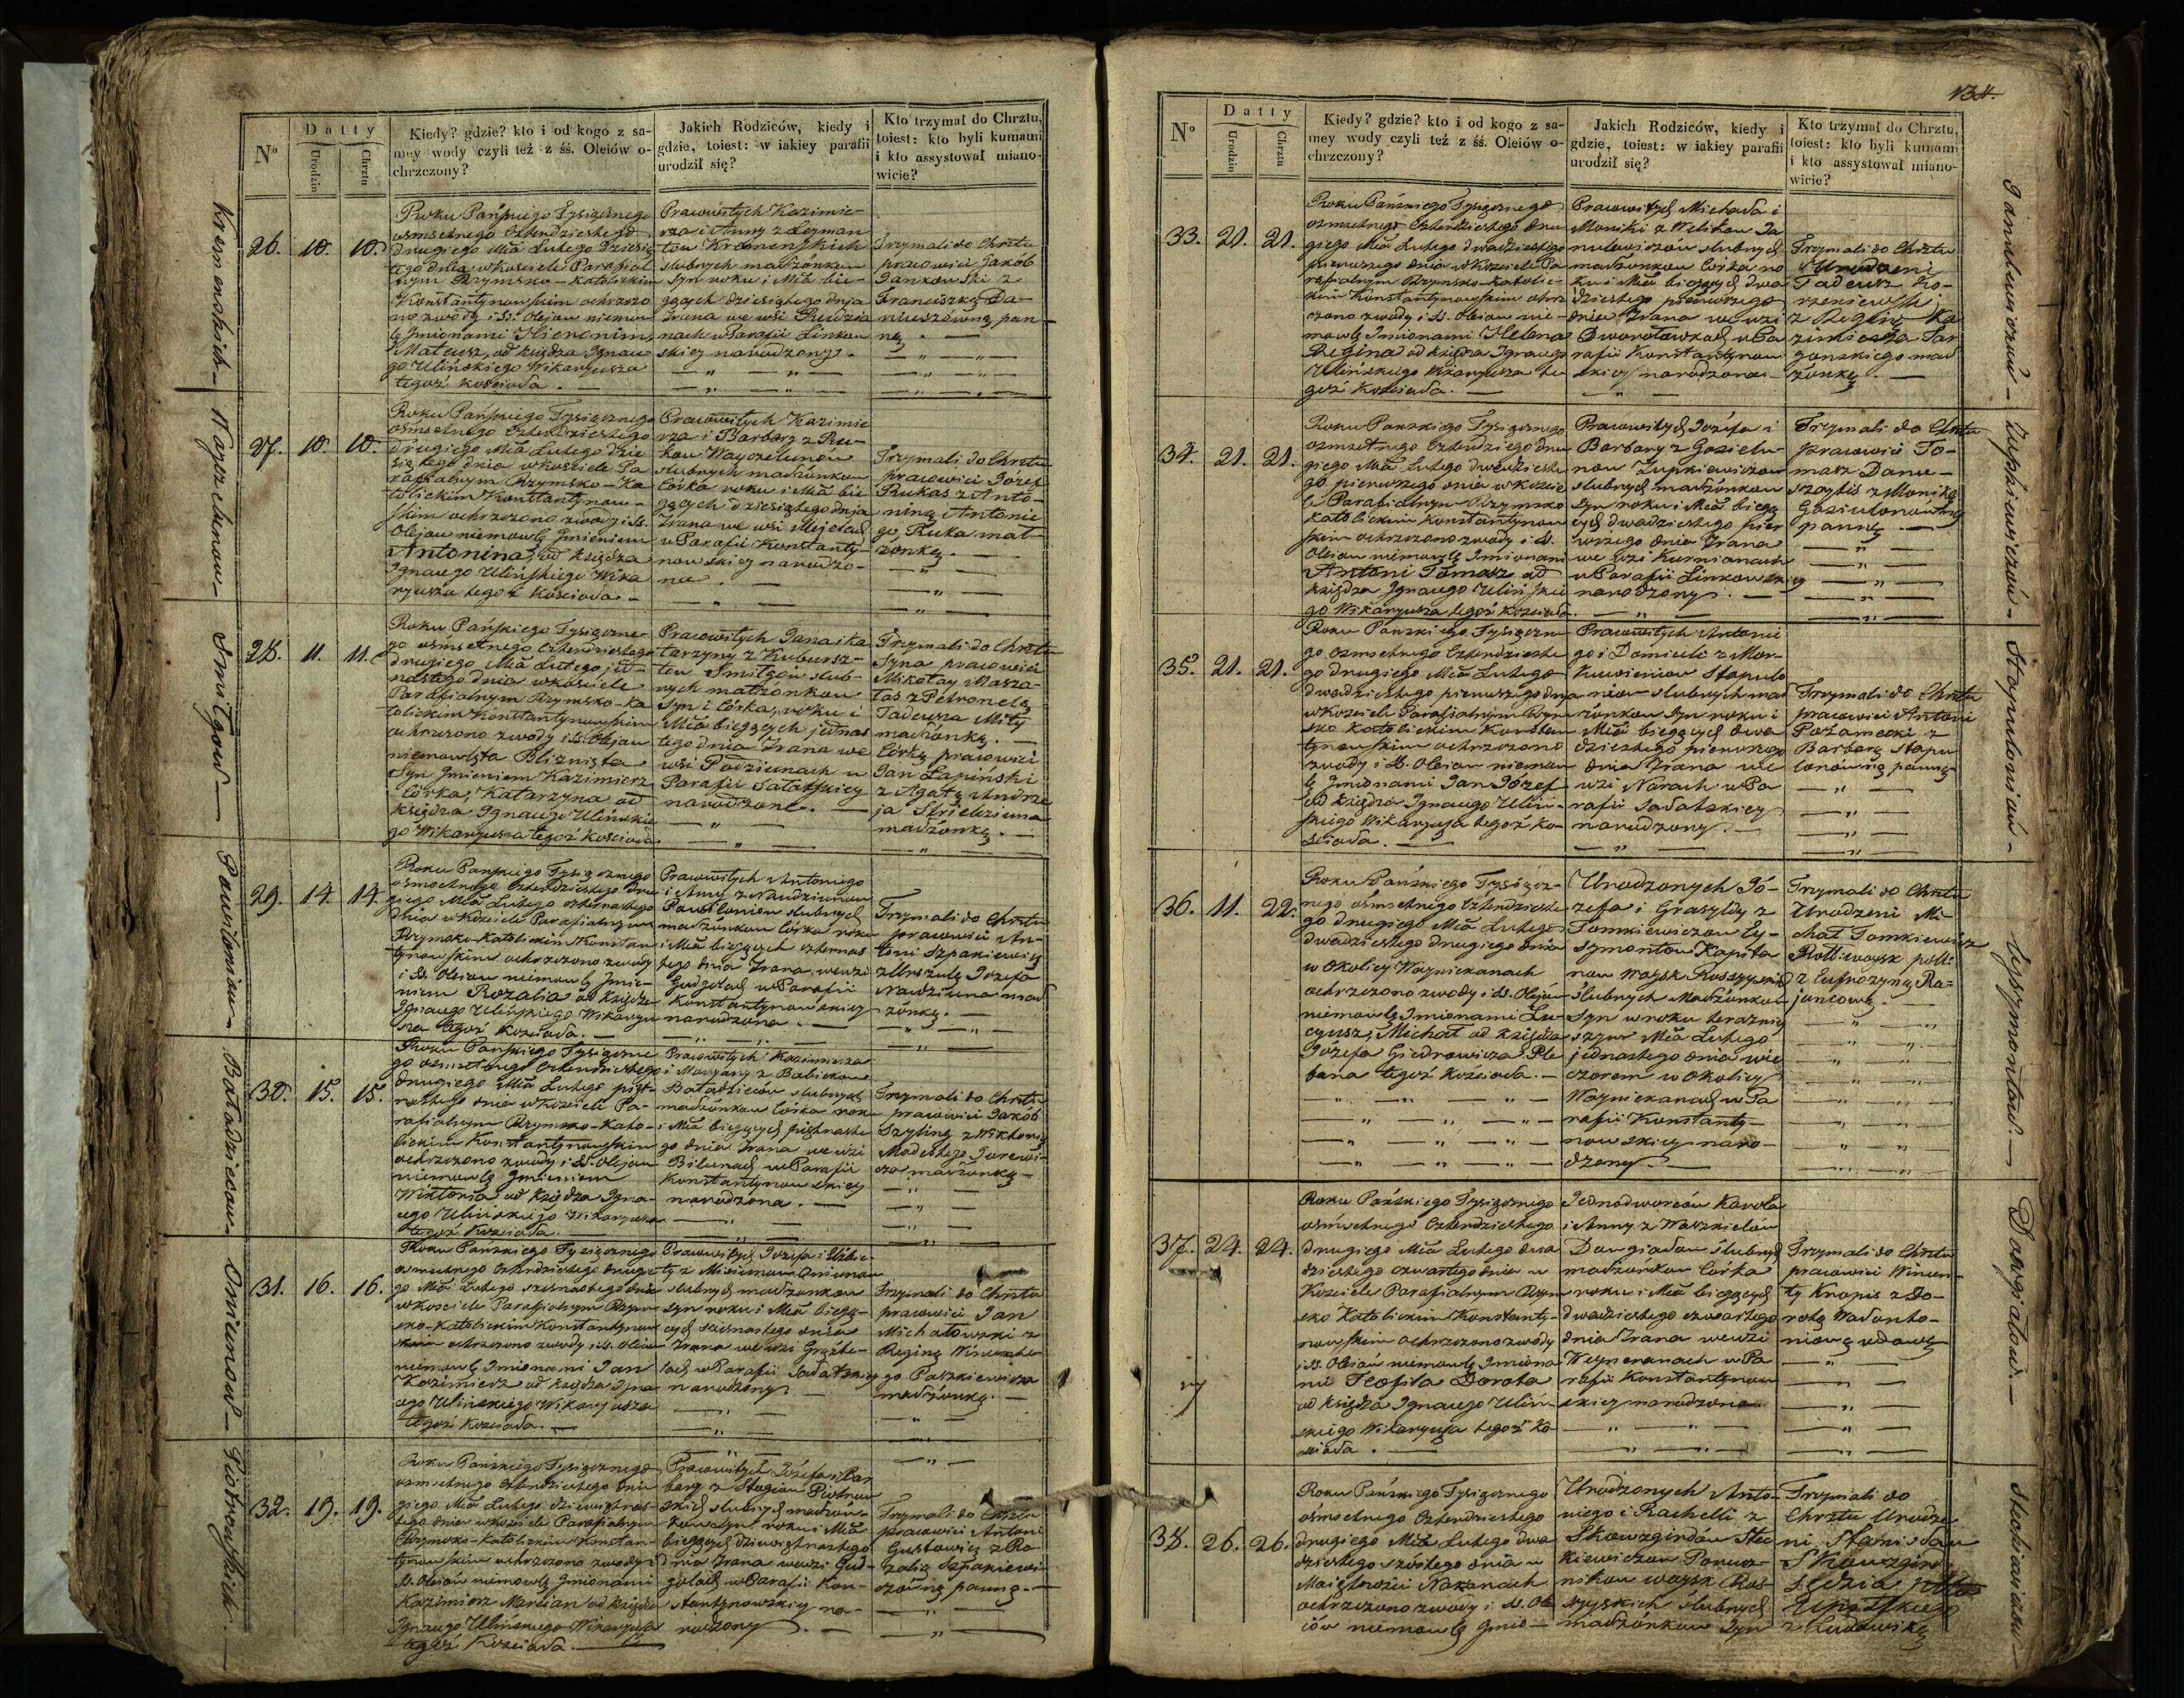 N°
Datty
Urodzin
Chrztu
Kiedy? gdzie? kto i od kogo z sa-
mey wody czyli też z śś. Oleiów o-
chrzczony?
Jakich Rodziców, kiedy i
gdzie, toiest: w iakiey parafii
urodził się?
Kto trzymał do Chrztu,
toiest: kto byli kumami
i kto assystował miano-
wicie?
Kremienskich
26. 10. 10.
Roku Pańskiego Tysiącznego
osmsetnego Czterdziestego
drugiego Mca Lutego dziesią
tego dnia w kosciele Parafial
nym Rzymsko-Katolickim
Konstantynowskim ochrzczo
no z wody i SS. Olejow niemow
lę Imionami Hieronim,
Mateusz, od księdza Ignace
go Ulińskiego Wikaryusza
tegoż kościoła. —
Pracowitych Kazimie-
rza i Anny z Leyman
tow Kremenskich
slubnych małżonkow
syn roku i Mca bie-
żących dziesiątego dnja
zrana we wsi
w Parafii Linkow
skiey narodzony. —
Trzymali do Chrztu
pracowici Jakób
Jankowski z
Franciszką Da-
niuszówną pan-
ną. —
27. 10. 10.
Roku Pańskiego Tysiącznego
osmsetnego Czterdziestego
drugiego Mca Lutego dzie
siątego dnia w kosciele Pa
rafialnym Rzymsko-Ka
tolickim Konstantynow-
skim ochrzczono z wody i SS.
Olejow niemowlę Imieniem
Antonina, od księdza
Ignacego Ulińskiego Wika
ryusza tegoż Kościoła —
Pracowitych Kazimie
rza i Barbary z Ru-
kow Wayczelunów
slubnych małżonkow
Córka roku i Mca bie
żących dziesiątego dnja
zrana we wsi Mejełach
w Parafii Konstanty-
nowskiey narodzo-
na. —
Trzymali do Chrztu
pracowici Jozef
Rukas z Anto-
niną Antonie
go, Ruka mał-
żonką. —
Smilgow
28. 11. 11.
Roku Pańskiego Tysiączne-
go osmsetnego Czterdziestego
drugiego Mca Lutego jede
nastego dnia w kosciele
Parafialnym Rzymsko-Ka
tolickim Konstantynowskim
ochrzczono z wody i SS. Olejow
niemowlęta Bliznięta
Syn Imieniem Kazimierz
Córka, Katarzyna od
księdza Ignacego Ulińskie
go Wikaryusza tegoż kościoła
Pracowitych Jana i Ka
tarzyny z Kubursz-
tow Smilgow slub-
nych małżonkow
Syn i Córka, roku i
Mca bieżących jednas
tego dnia zrana we
wsi Podziunach w
Parafii Sałatskiey
narodzone. —
Trzymali do Chrztu
Syna pracowici
Mikołay Masza-
łas z Petronelą
Tadeusza Miły
małżonką. —
Córkę pracowici
Jan Łapinski
z Agatą Andrze
ja Stielziuna
małżonką. —
Pawilonien
29. 14. 14.
Roku Pańskiego Tysiącznego
osmsetnego Czterdziestego dru
giego Mca Lutego czternastego
dnia w Kosciele Parafialnym
Rzymsko-Katolickim Konstan
tynowskim ochrzczono z wody
i SS. Olejow niemowlę Imie-
niem Rozalia od księdza
Ignacego Ulińskiego Wikaryu
sza tegoż kościoła. —
Pracowitych Antoniego
i Anny z Nawdziunow
Pawilonien slubnych
małżonkow Córka roku
i Mca bieżących czternas
tego dnia zrana, we wsi
Gudgołach w Parafii
Konstantynowskiey
narodzona. —
Trzymali do Chrztu
pracowici An-
toni Szpakiewicz
z Urszulą Jozefa
Nawdziuna mał
żonką. —
Baładziecow
30. 15. 15.
Roku Pańskiego Tysiączne
go osmsetnego Czterdziestego
drugiego Mca Lutego pięt-
nastego dnia w kosciele Pa-
rafialnym Rzymsko-Kato-
lickim Konstantynowskim
ochrzczono z wody i SS. Olejow
niemowlę Imieniem
Wiktoria od księdza Igna-
cego Ulińskiego Wikaryusza
tegoż Kosciola. —
Pracowitych Kazimierza
i Maryany z Babickow
Baładziecow slubnych
małżonkow Córka roku
i Mca bieżących piętnaste
go dnia zrana we wsi
Bilunach w Parafii
Konstantynowskiey
narodzona. —
Trzymali do Chrztu
pracowici Jakób
Szyling z Wiktoryą
Modesta Jurewi-
cza małżonką —
Oniunow
31. 16. 16.
Roku Pańskiego Tysiącznego
osmsetnego Czterdziestego drugie
go Mca Lutego szesnastego dnia
w kosciele Parafialnym Rzym
sko-Katolickim Konstantynow
skim ochrzczono z wody i SS. Olejow
niemowlę Imionami Jan
Kazimierz od księdza Igna
cego Ulińskiego Wikaryusza
tegoż Kościoła. —
Pracowitych Jozefa i Elżbie
ty z Misiunow Oniunow
slubnych małżonkow
syn roku i Mca bieżą-
cych szesnastego dnia
zrana we wsi
w Parafii Sałatskiey
narodzony —
Trzymali do Chrztu
pracowici Jan
Michałowski z
Reginą Wincente
go Paszkiewicza
małżonką. —
Piotrowskich
32. 19. 19.
Roku Pańskiego Tysiącznego
osmsetnego Czterdziestego dru
giego Mca Lutego dziewiętnas-
tego dnia w kosciele Parafialnym
Rzymsko-Katolickim Konstan-
tynowskim ochrzczono z wody i
SS. Olejów niemowlę Imionami
Kazimierz Marcian od księdza
Ignacego Ulińskiego Wikaryusza
tegoż Kosciola. —
Pracowitych Józefa i Bar
bary z Piotrow
skich slubnych małżon-
kow syn roku i Mca
bieżących dziewiętnastego
dnia zrana we wsi Gud-
gołach w Parafii Kon-
stantynowskiey na-
rodzony. —
Trzymali do Chrztu
pracowici Antoni
Gustowicz z Ro
zalią Szpakiewi-
czówną panną. —
134.
N°
Datty
Urodzin
Chrztu
Kiedy? gdzie? kto i od kogo z sa-
mey wody czyli też z śś. Oleiów o-
chrzczony?
Jakich Rodziców, kiedy i
gdzie, toiest: w iakiey parafii
urodził się?
Kto trzymał do Chrztu,
toiest: kto byli kumami
i kto assystował miano-
wicie?
33. 21. 21.
Roku Pańskiego Tysiącznego
osmsetnego Czterdziestego dru
giego Mca Lutego dwudziestego
pierwszego dnia w Kosciele Pa
rafialnym Rzymsko-Katolic-
kim Konstantynowskim ochrz
czono z wody i SS. Olejow nie-
mowlę Imionami Helena
Regina od księdza Ignacego
Ulińskiego Wikaryusza te
goż Kosciola. —
Pracowitych Michała i
Moniki z Welikow Ja
nulewiczow slubnych
małżonkow Córka ro
ku i Mca bieżących dwu
dziestego pierwszego
dnia zrana we wsi
w Pa
rafii Konstantynow
skiey narodzona. —
Trzymali do Chrztu
Urodzeni
Tadeusz Ko-
rzeniewski
z Reginą Ka
zimierza Jar
gonskiego mał
żonką. —
Zupkiewiczów
34. 21. 21.
Roku Pańskiego Tysiącznego
osmsetnego Czterdziestego dru
giego Mca Lutego dwudzieste
go pierwszego dnia w koście
le Parafialnym Rzymsko
Katolickim Konstantynow
skim ochrzczono z wody i SS.
Olejow niemowlę Imionami
Antoni Tomasz od
księdza Ignacego Ulińskie
go Wikaryusza tegoż kosciola.
Pracowitych Józefa i
Barbary z Gasielu-
now Zupkiewiczow
slubnych małżonkow
syn roku i Mca bieżą
cych dwudziestego pier
wszego dnia zrana
we wsi Kurmianach
w Parafii Linkowskiey
narodzony. —
Trzymali do Chrztu
pracowici To-
masz Danu-
szaytis z Moniką
Gasiulonowną
panną. —
35. 21. 21.
Roku Pańskiego Tysiączne
go osmsetnego Czterdzieste
go drugiego Mca Lutego
dwudziestego pierwszego dnja
w kosciele Parafialnym Rzym
sko Katolickim Konstan
tynowskim ochrzczono
z wody i SS. Olejow niemow
lę Imionami Jan Józef
od księdza Ignacego Uliń-
skiego Wikaryusza tegoż Ko-
sciola. —
Pracowitych Antonie
go i Domiceli z Mor-
kuwieniow Stapulo
niow slubnych mał
żonkow syn roku i
Mca bieżących dwu
dziestego pierwszego
dnia zrana we
wsi Narach w Pa
rafii Sałatskiey
narodzony. —
Trzymali do Chrztu
pracowici Antoni
Pożarnecki z
Barbarą Stapu
lonówną panną.
Syrymontow
36. 11. 22.
Roku Pańskiego Tysiącz-
nego osmsetnego Czterdzieste
go drugiego Mca Lutego
dwudziestego drugiego dnia
w Okolicy Wayniekanach
ochrzczono z wody i SS. Olejów
niemowlę Imionami Lu-
cyusz, Michał od księdza
Józefa Giedrowicza Ple
bana tegoż Kościoła. —
Urodzonych Jó-
zefa i Grasyldy z
Tomkiewiczow
Kapita
now Woysk Rossyyskich
ślubnych Małżonkow
Syn w roku teraźniey
szym Mca Lutego
jednastego dnia wie
czorem w Okolicy
Wayniekanach w Pa
rafii Konstanty-
nowskiey naro-
dzony. —
Trzymali do Chrztu
Urodzeni Mi-
chał Tomkiewicz
z Eufrozyną Ra=
juncową. —
Dowgiałow
37. 24. 24.
Roku Pańskiego Tysiącznego
osmsetnego Czterdziestego
drugiego Mca Lutego dwu
dziestego czwartego dnia w
Kosciele Parafialnym Rzym
sko Katolickim Konstanty-
nowskim ochrzczono z wody
i SS. Olejów niemowlę Imiona
mi Teofila Dorota
od księdza Ignacego Uliń-
skiego Wikaryusza tegoż Ko-
sciola. —
Jednodworców Karola
i Anny z Waszkielow
Dowgiałow ślubnych
małżonkow Córka
roku i Mca bieżących
dwudziestego czwartego
dnia zrana we wsi
w Pa
rafii Konstantynow
skiey narodzona
Trzymali do Chrztu
pracowici Wincen-
ty Knapis z Do-
rotą Wadonto-
niową wdową
38. 26. 26.
Roku Pańskiego Tysiącznego
osmsetnego Czterdziestego
drugiego Mca Lutego dwu
dziestego szóstego dnia w
Maiętności Nakanach
ochrzczono z wody i SS. Ole
jów niemowlę Imio-
Urodzonych Anto-
niego i Rachelli z
Skowzgirdów Stec
kiewiczow Porucz-
nikow woysk Ros-
syyskich ślubnych
małżonkow Syn
Trzymali do
Chrztu Urodze
ni Stanisław
Skowzgird
sędzia
z Ludowiką